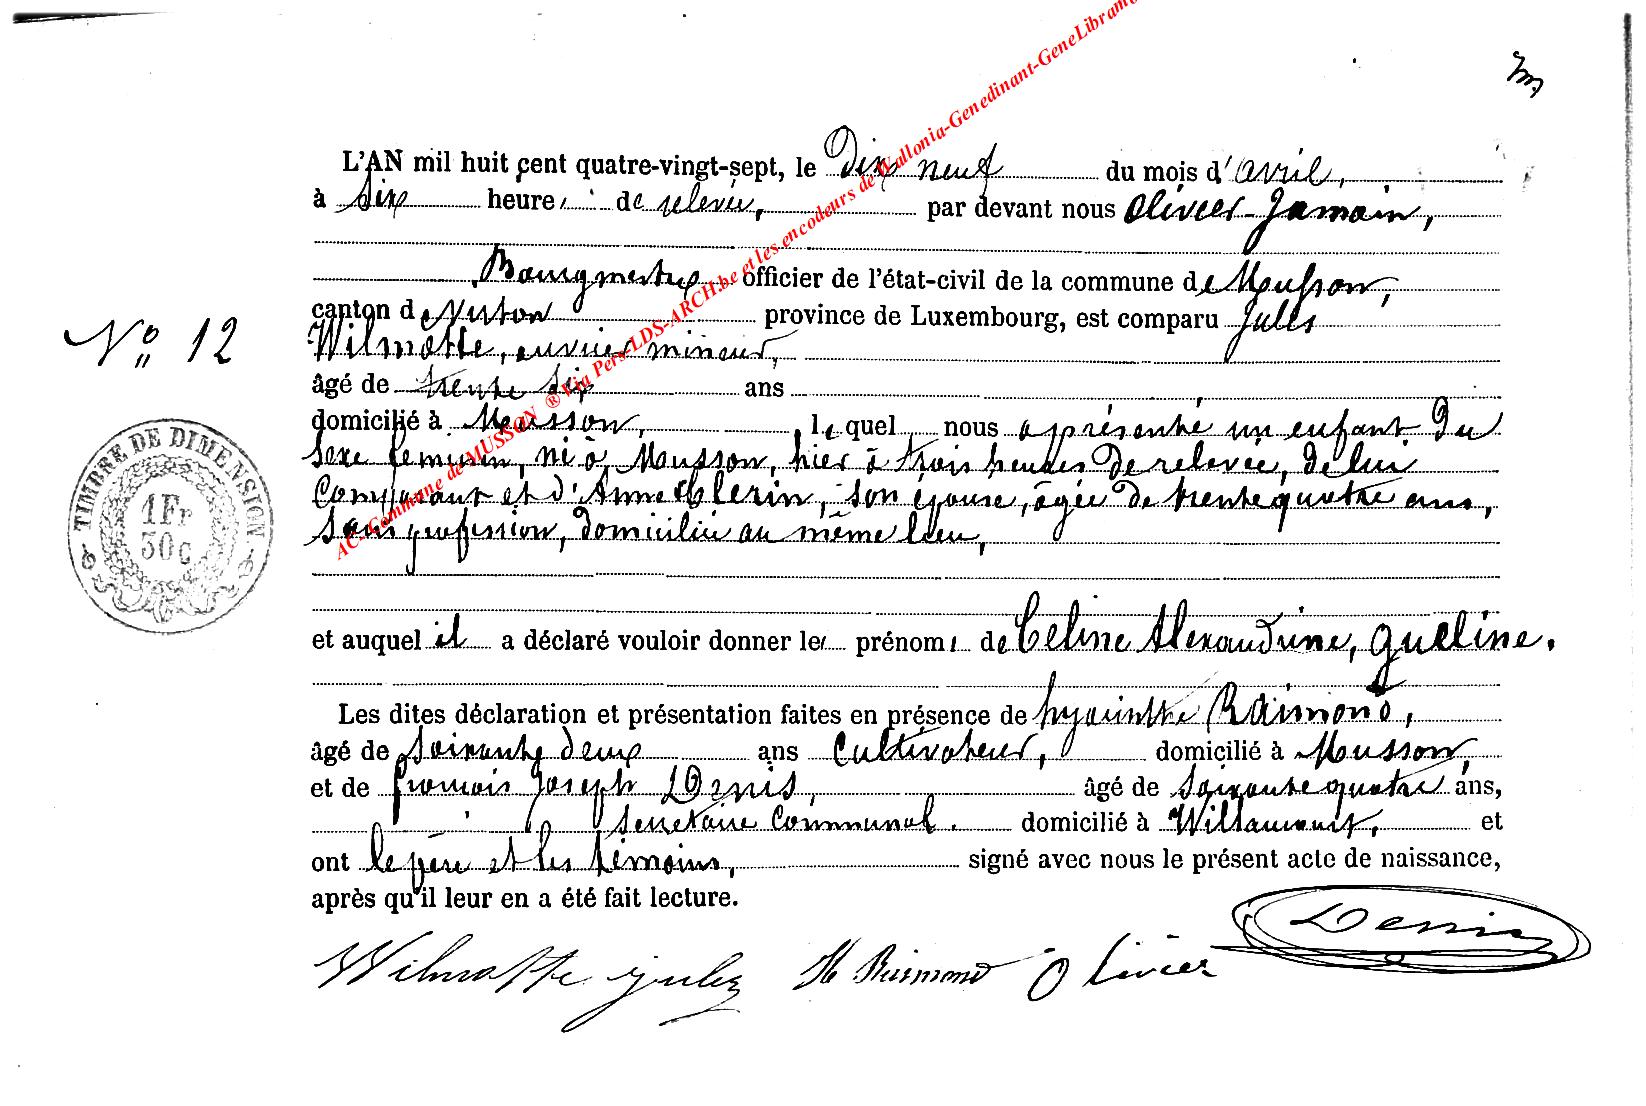 L'AN mil huit cent quatre-vingt-sept, le Dix neuf du mois d'avril,
à six heure, de relevée, par devant nous Olivier Jamain,
Bourgmestre officier de l'état-civil de la commune de Musson,
canton de Virton province de Luxembourg, est comparu Jules
N° 12
Wilmotte, ouvrier mineur,
âgé de trente six ans
domicilié à Musson, lequel nous a présenté un enfant du
sexe feminin, né à Musson, hier à trois heures de relevée, de lui
Comparant et d'Anne Clerin, son épouse, âgée de trente quatre ans,
sans profession, domiciliée au même lieu,
TIMBRE DE DIMENSION
1Fr
30c
et auquel il a déclaré vouloir donner les prénoms de Celine Alexandrine, Gueline.
Les dites déclaration et présentation faites en présence de hyacinthe Raimond,
âgé de soixante deux ans Cultivateur, domicilié à Musson,
et de françois Joseph Denis, âgé de soixante quatre ans,
secretaire Communal. domicilié à Willancourt, et
ont le père et les témoins, signé avec nous le présent acte de naissance,
après qu'il leur en a été fait lecture.
Denis
Wilmotte jules H Raimond Olivier
AC-Commune de MUSSON ® Via Pers-LDS-ARCH.be et les encodeurs de Wallonia-Genedinant-GeneLibramo